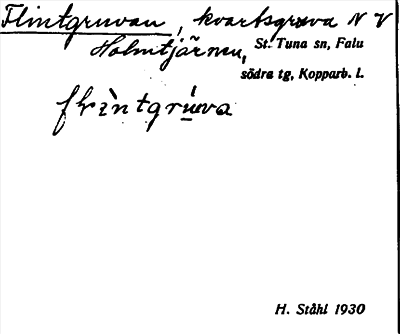 Flintgruvan, kvartsgruva N V
Holmtjärnen,
St. Tuna sn, Falu
södra tg, Kopparb. l.
flìntgrúva
H. Ståhl 1930